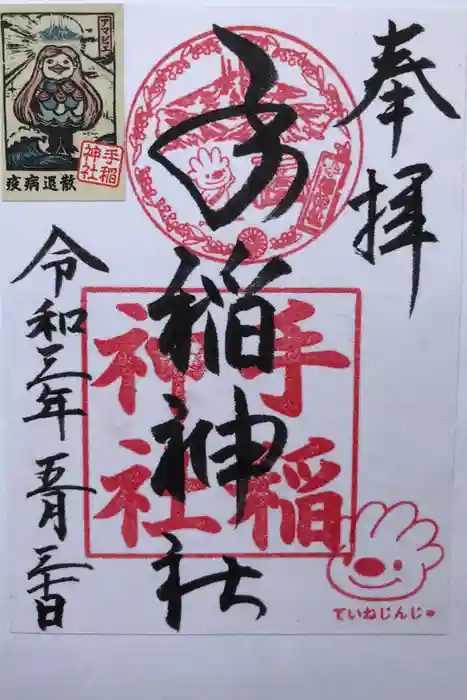 奉拝
手稲神社
令和三年 五月 三十日
手稲
神社
アマビエ
疫病退散
手稲
神社
ていねじんじゃ